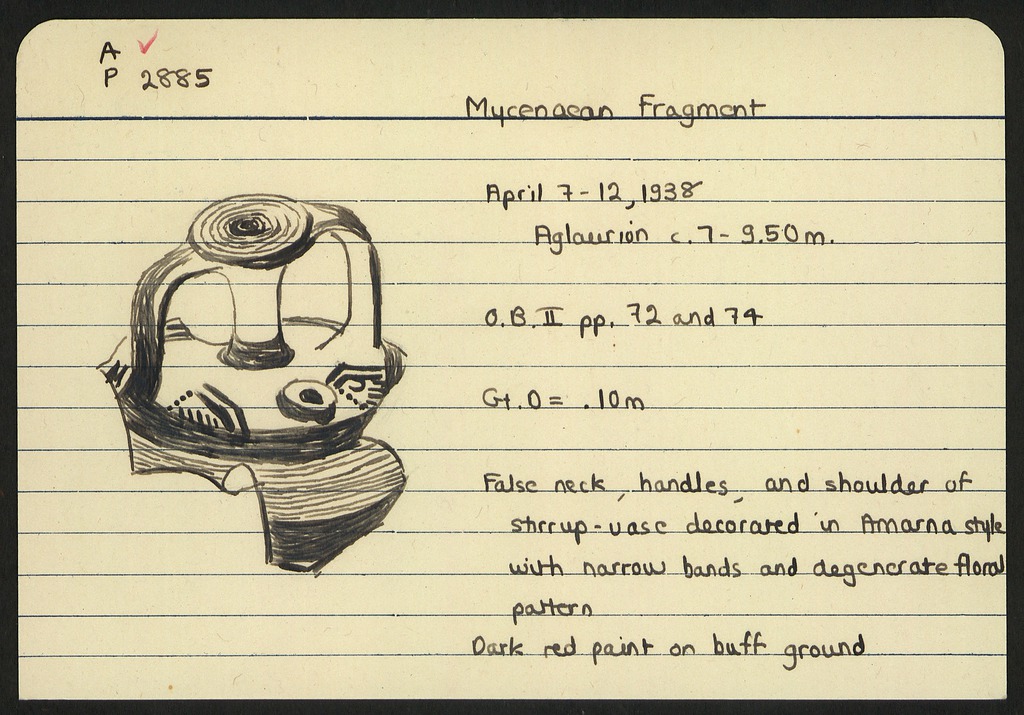 A ✓
P 2885
Mycenaean Fragment
April 7-12, 1938
Aglaurion c. 7- 9.50m.
O.B. II pp. 72 and 74
Gt. D = .10m
False neck, handles, and shoulder of
stirrup-vase decorated in Amarna style
with narrow bands and degenerate floral
pattern
Dark red paint on buff ground